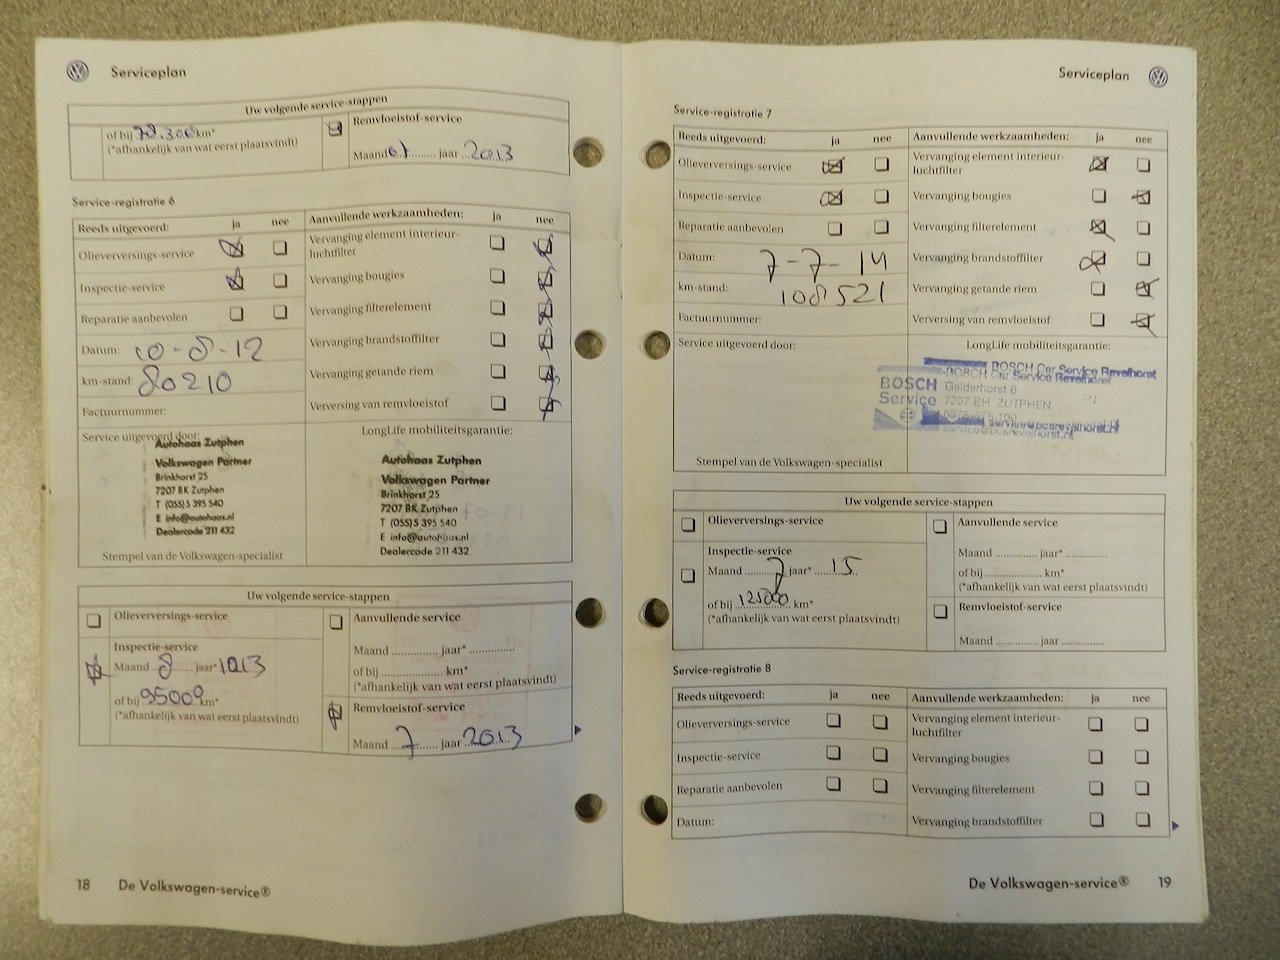 Serviceplan
Uw volgende service-stappen
of bij 78.300 km*
(*afhankelijk van wat eerst plaatsvindt)
Remvloeistof-service
Maand 07 jaar 2013
Service-registratie 6
Reeds uitgevoerd: ja nee
Olieverversings-service
Inspectie-service
Reparatie aanbevolen
Datum: 10-8-12
km-stand: 80210
Factuurnummer:
Aanvullende werkzaamheden: ja nee
Vervanging element interieur-
luchtfilter
Vervanging bougies
Vervanging filterelement
Vervanging brandstoffilter
Vervanging getande riem
Verversing van remvloeistof
Service uitgevoerd door:
Autohaas Zutphen
Volkswagen Partner
Brinkhorst 25
7207 BK Zutphen
T (055) 5 395 540
E info@autohaas.nl
Dealercode 211 432
Stempel van de Volkswagen-specialist
LongLife mobiliteitsgarantie:
Autohaas Zutphen
Volkswagen Partner
Brinkhorst 25
7207 BK Zutphen
T (055) 5 395 540
E info@autohaas.nl
Dealercode 211 432
Uw volgende service-stappen
Olieverversings-service
Inspectie-service
Maand 8 jaar* 1013
of bij 95000 km*
(*afhankelijk van wat eerst plaatsvindt)
Aanvullende service
Maand .............. jaar* ..............
of bij .................... km*
(*afhankelijk van wat eerst plaatsvindt)
Remvloeistof-service
Maand 7 jaar 2013
18 De Volkswagen-service®
Serviceplan
Service-registratie 7
Reeds uitgevoerd: ja nee
Olieverversings-service
Inspectie-service
Reparatie aanbevolen
Datum: 7-7-14
km-stand: 108521
Factuurnummer:
Aanvullende werkzaamheden: ja nee
Vervanging element interieur-
luchtfilter
Vervanging bougies
Vervanging filterelement
Vervanging brandstoffilter
Vervanging getande riem
Verversing van remvloeistof
Service uitgevoerd door:
Stempel van de Volkswagen-specialist
LongLife mobiliteitsgarantie:
BOSCH Car Service Revelhorst
BOSCH
Service
Gelderhorst 6
7207 BH ZUTPHEN
service@bcsrevelhorst.nl
Uw volgende service-stappen
Olieverversings-service
Inspectie-service
Maand 7 jaar* 15
of bij 125000 km*
(*afhankelijk van wat eerst plaatsvindt)
Aanvullende service
Maand .............. jaar* ..............
of bij .................... km*
(*afhankelijk van wat eerst plaatsvindt)
Remvloeistof-service
Maand .............. jaar ..............
Service-registratie 8
Reeds uitgevoerd: ja nee
Olieverversings-service
Inspectie-service
Reparatie aanbevolen
Datum:
Aanvullende werkzaamheden: ja nee
Vervanging element interieur-
luchtfilter
Vervanging bougies
Vervanging filterelement
Vervanging brandstoffilter
De Volkswagen-service® 19